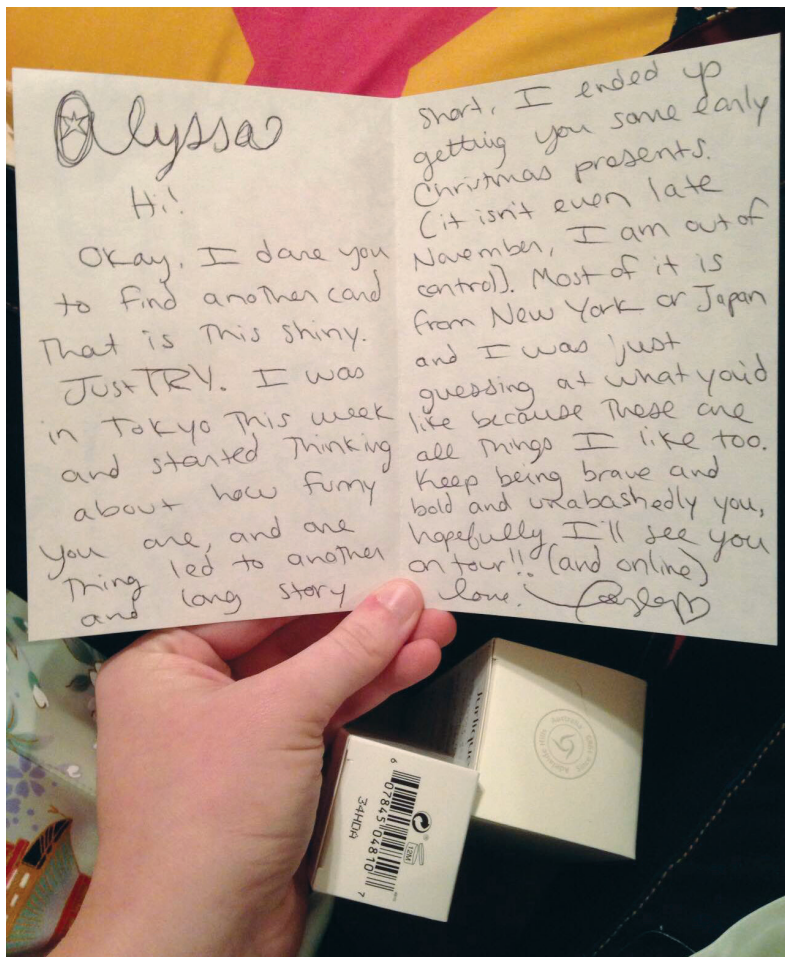 Alyssa
Hi!
Okay, I dare you
to find another card
That is This shiny.
Just TRY. I was
in Tokyo This week
and started Thinking
about how funny
you are, and one
Thing led to another
and long story
short, I ended up
getting you some early
Christmas presents.
(it isn't even late
November, I am out of
control). Most of it is
from New York or Japan
and I was just
guessing at what you'd
like because These are
all Things I like too.
Keep being brave and
bold and unabashedly you,
hopefully I'll see you
on tour!! (and online)
love,
6 07845 04810 7
34HDA
12M